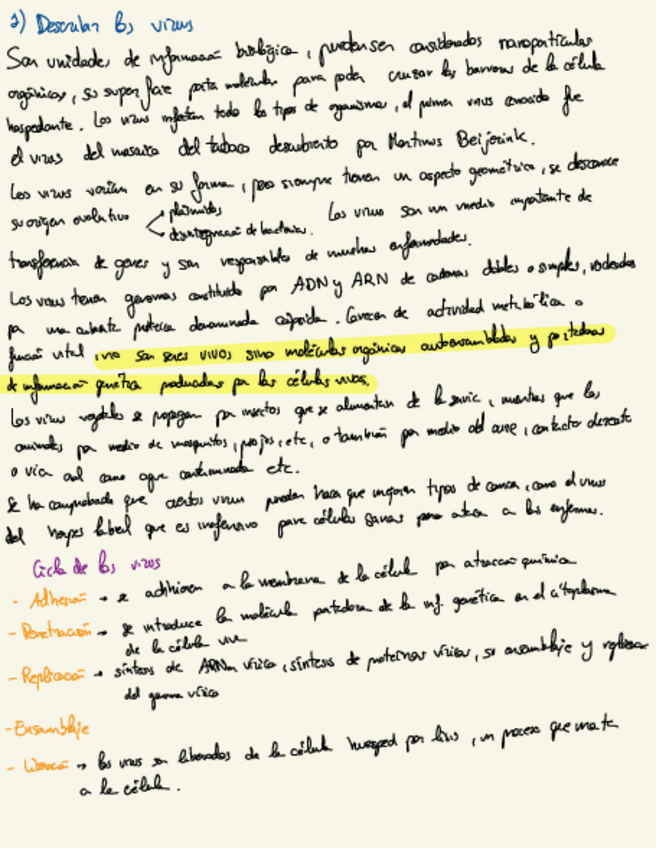 2) Describir los virus
Son unidades de información biológica, pueden ser considerados nanopartículas
orgánicas, su superficie porta moléculas para poder cruzar las barreras de la célula
hospedante. Los virus infectan todo los tipos de organismos, el primer virus conocido fue
el virus del mosaico del tabaco descubierto por Martinus Beijerink.
Los virus varían en su forma, pero siempre tienen un aspecto geométrico, se desconoce
su origen evolutivo < plásmidos
desintegración de bacterias. Los virus son un medio importante de
transferencia de genes y son responsables de muchas enfermedades.
Los virus tienen genomas constituido por ADN y ARN de cadenas dobles o simples, rodeados
por una cubierta proteica denominada cápside. Carecen de actividad metabólica o
función vital, no son seres vivos, sino moléculas orgánicas autoensambladas y portadoras
de información genética producidas por las células vivas.
Los virus vegetales se propagan por insectos que se alimentan de la savia, mientras que los
animales por medio de mosquitos, piojos, etc, o también por medio del aire, contacto directo
o vía oral como agua contaminada etc.
Se ha comprobado que ciertos virus pueden hacer que mejoren tipos de cancer, como el virus
del herpes labial que es inofensivo para células sanas pero ataca a las enfermas.
Ciclo de los virus
- Adhesión → se adhieren a la membrana de la célula por atracción química
- Penetración → se introduce la molécula portadora de la inf. genética en el citoplasma
de la célula viva
- Replicación → síntesis de ARNm vírico, síntesis de proteínas víricas, su ensamblaje y replicación
del genoma vírico
- Ensamblaje
- Liberación → los virus son liberados de la célula huesped por lisis, un proceso que mata
a la célula.